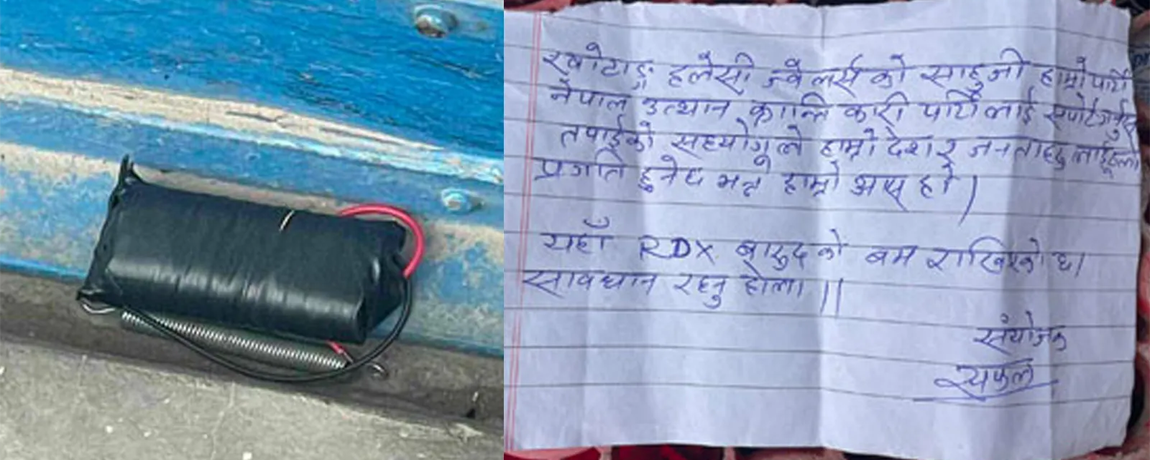 खोटाङ हलेसी ज्वेलर्स को साहुजी हाम्रो पार्टी
नेपाल उत्थान क्रान्ति कारी पार्टी लाई सपोर्ट
तपाईको सहयोगले हाम्रो देश र जनताहरु लाई
प्रगति हुनेछ भन्ने हाम्रो आस हो।
यहाँ RDX बारुद को बम राखिएको छ।
सावधान रहनु होला।।
संयोजक